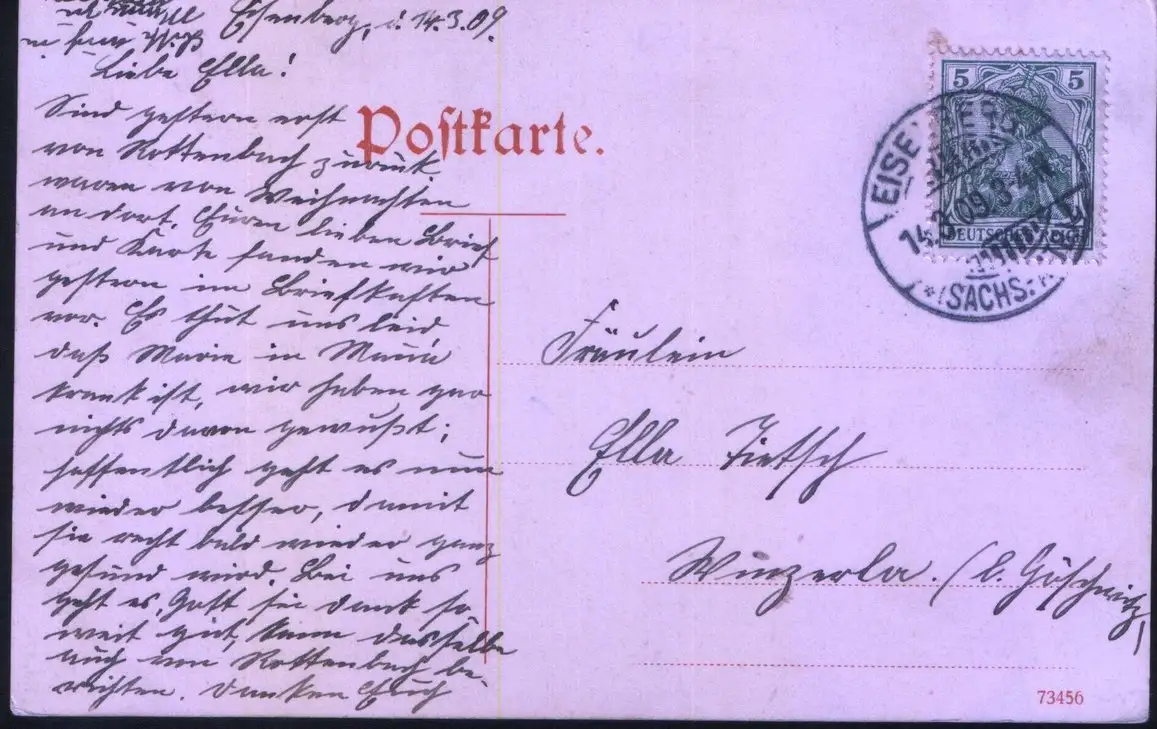 Eisenberg, d. 14.3.09.
Liebe Ella!
Sind gestern erst
von Rottenbach zurück,
waren von Weihnachten
an dort. Euren lieben Brief
und Karte fanden wir
gestern im Briefkasten
vor. Es thut uns leid
daß Marie in
krank ist, wir haben gar
nichts davon gewußt;
hoffentlich geht es nun
wieder besser, damit
sie recht bald wieder ganz
gesund wird. Bei uns
geht es, Gott sei dank so
weit gut, kann dasselbe
auch von Rottenbach be-
richten. Danken Euch
Postkarte.
5 5
DEUTSCHES REICH
EISENBERG
14.3.09. 3-4 N
*(SACHS.-A
Fräulein
Ella Tietsch
Winzerla. (b. Göschwitz)
73456